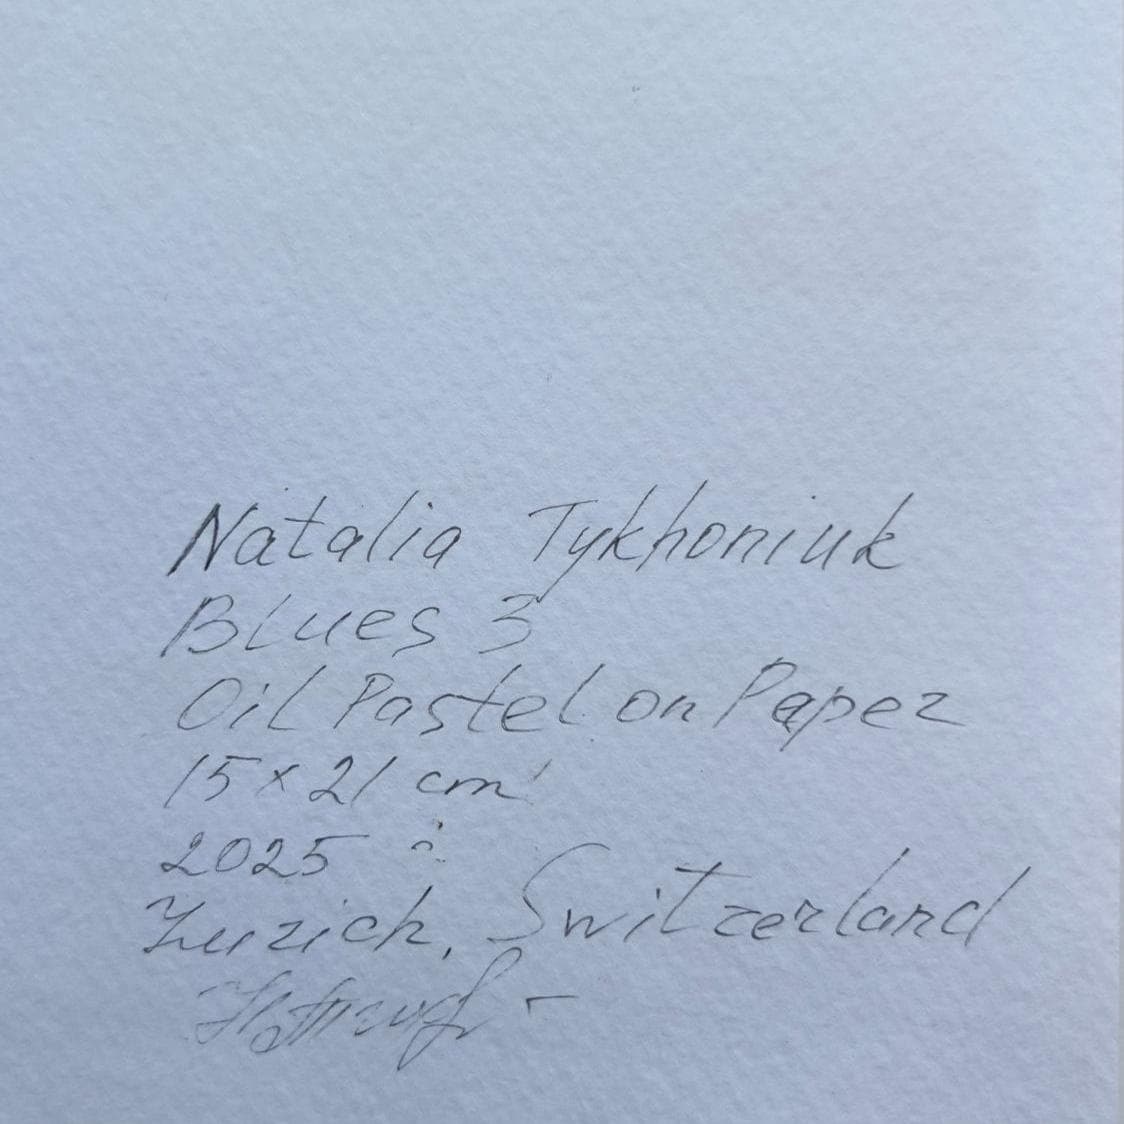 Natalia Tykhoniuk
Blues 3
Oil Pastel on Paper
15 x 21 cm
2025
Zurich, Switzerland